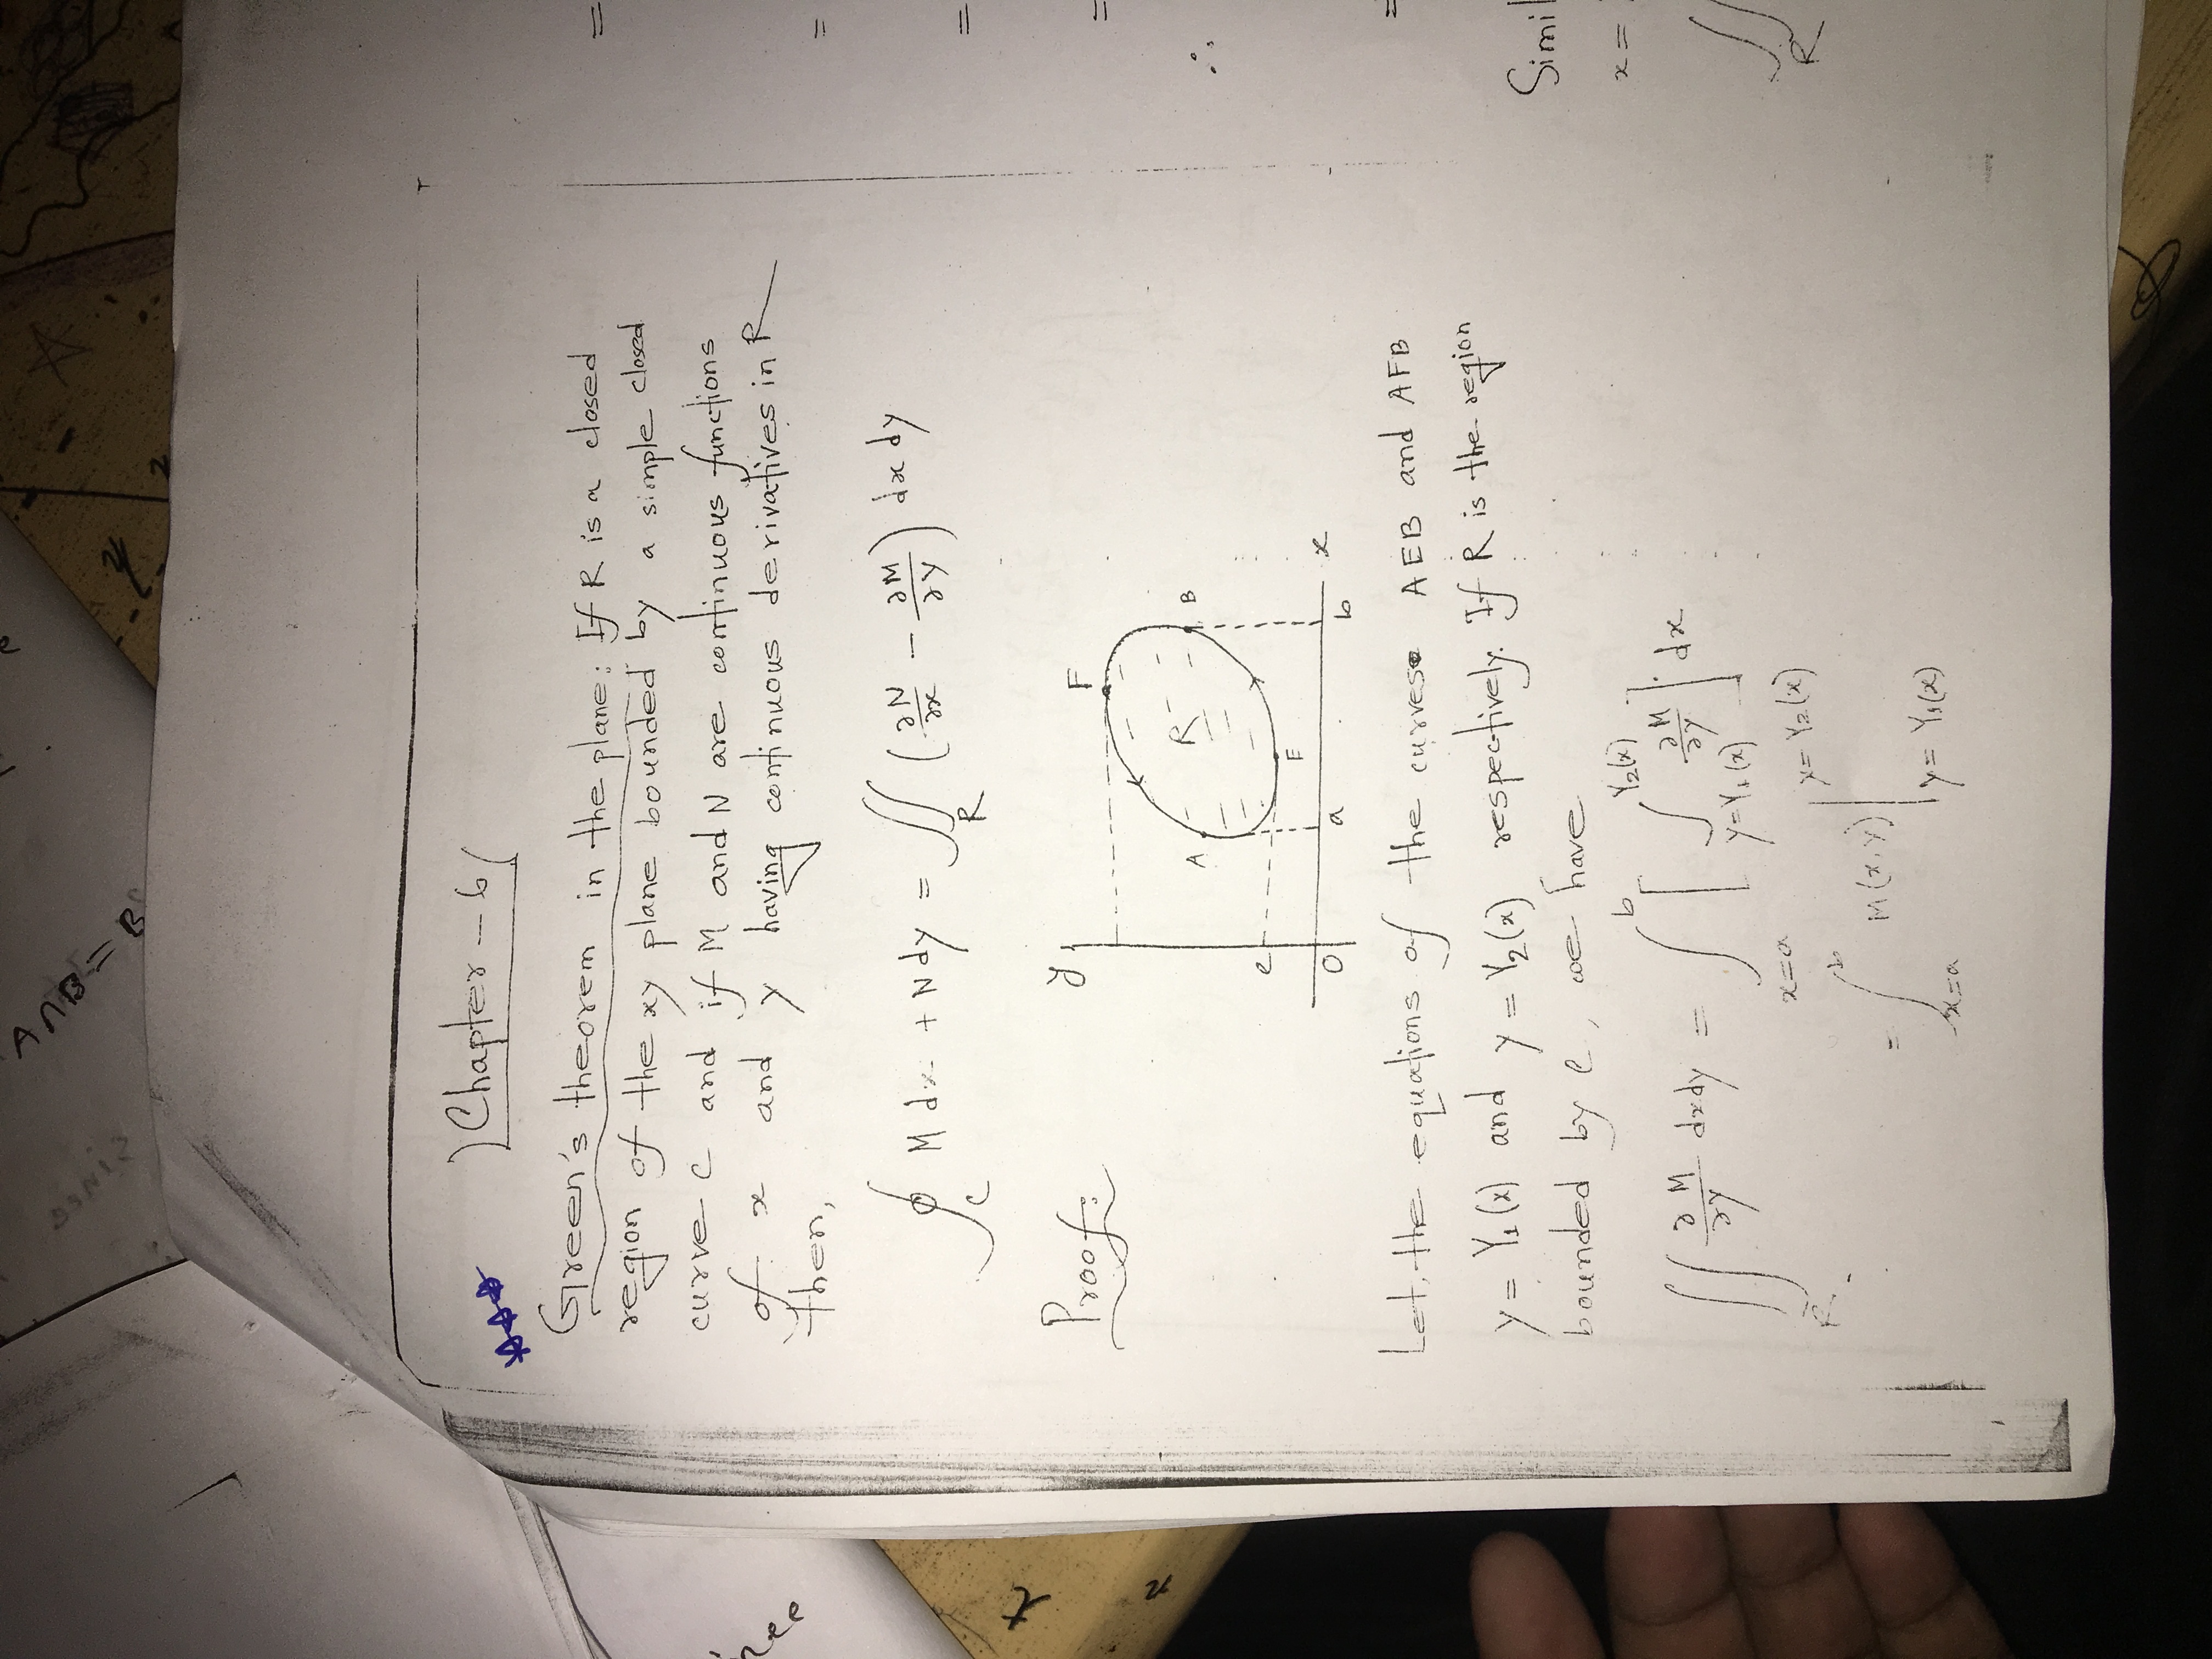 A∩B = B
Since
Chapter – 6
Green's theorem in the plane: If R is a closed
region of the xy plane bounded by a simple closed
curve C and if M and N are continuous functions
of x and y having continuous derivatives in R
then,
∮_C M dx + N dy = ∬_R (∂N/∂x − ∂M/∂y) dx dy
Proof:
y
F
A R B
e
E
O a b x
Let, the equations of the curves AEB and AFB
y = Y₁(x) and y = Y₂(x) respectively. If R is the region
bounded by C, we have
∬_R ∂M/∂y dxdy = ∫_{x=a}^{b} [ ∫_{y=Y₁(x)}^{Y₂(x)} ∂M/∂y ] dx
= ∫_{x=a}^{b} M(x,y) |_{y=Y₁(x)}^{y=Y₂(x)}
=
=
=
=
∴
=
Simil
x =
∬_R